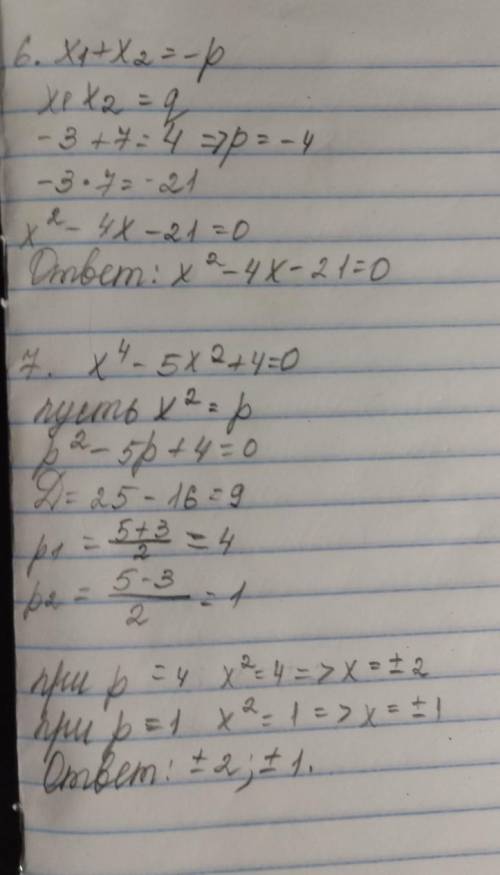 6. x₁+x₂=-p
x₁x₂=q
-3+7=4=>p=-4
-3·7=-21
x²-4x-21=0
Ответ: x²-4x-21=0
7. x⁴-5x²+4=0
пусть x²=p
p²-5p+4=0
D=25-16=9
p₁=(5+3)/2=4
p₂=(5-3)/2=1
при p=4 x²=4=>x=±2
при p=1 x²=1=>x=±1
Ответ: ±2; ±1.